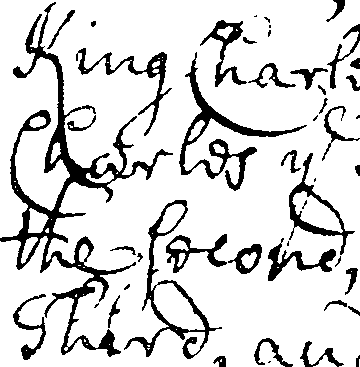 King Charl
Charles y
the Second,
Third, an